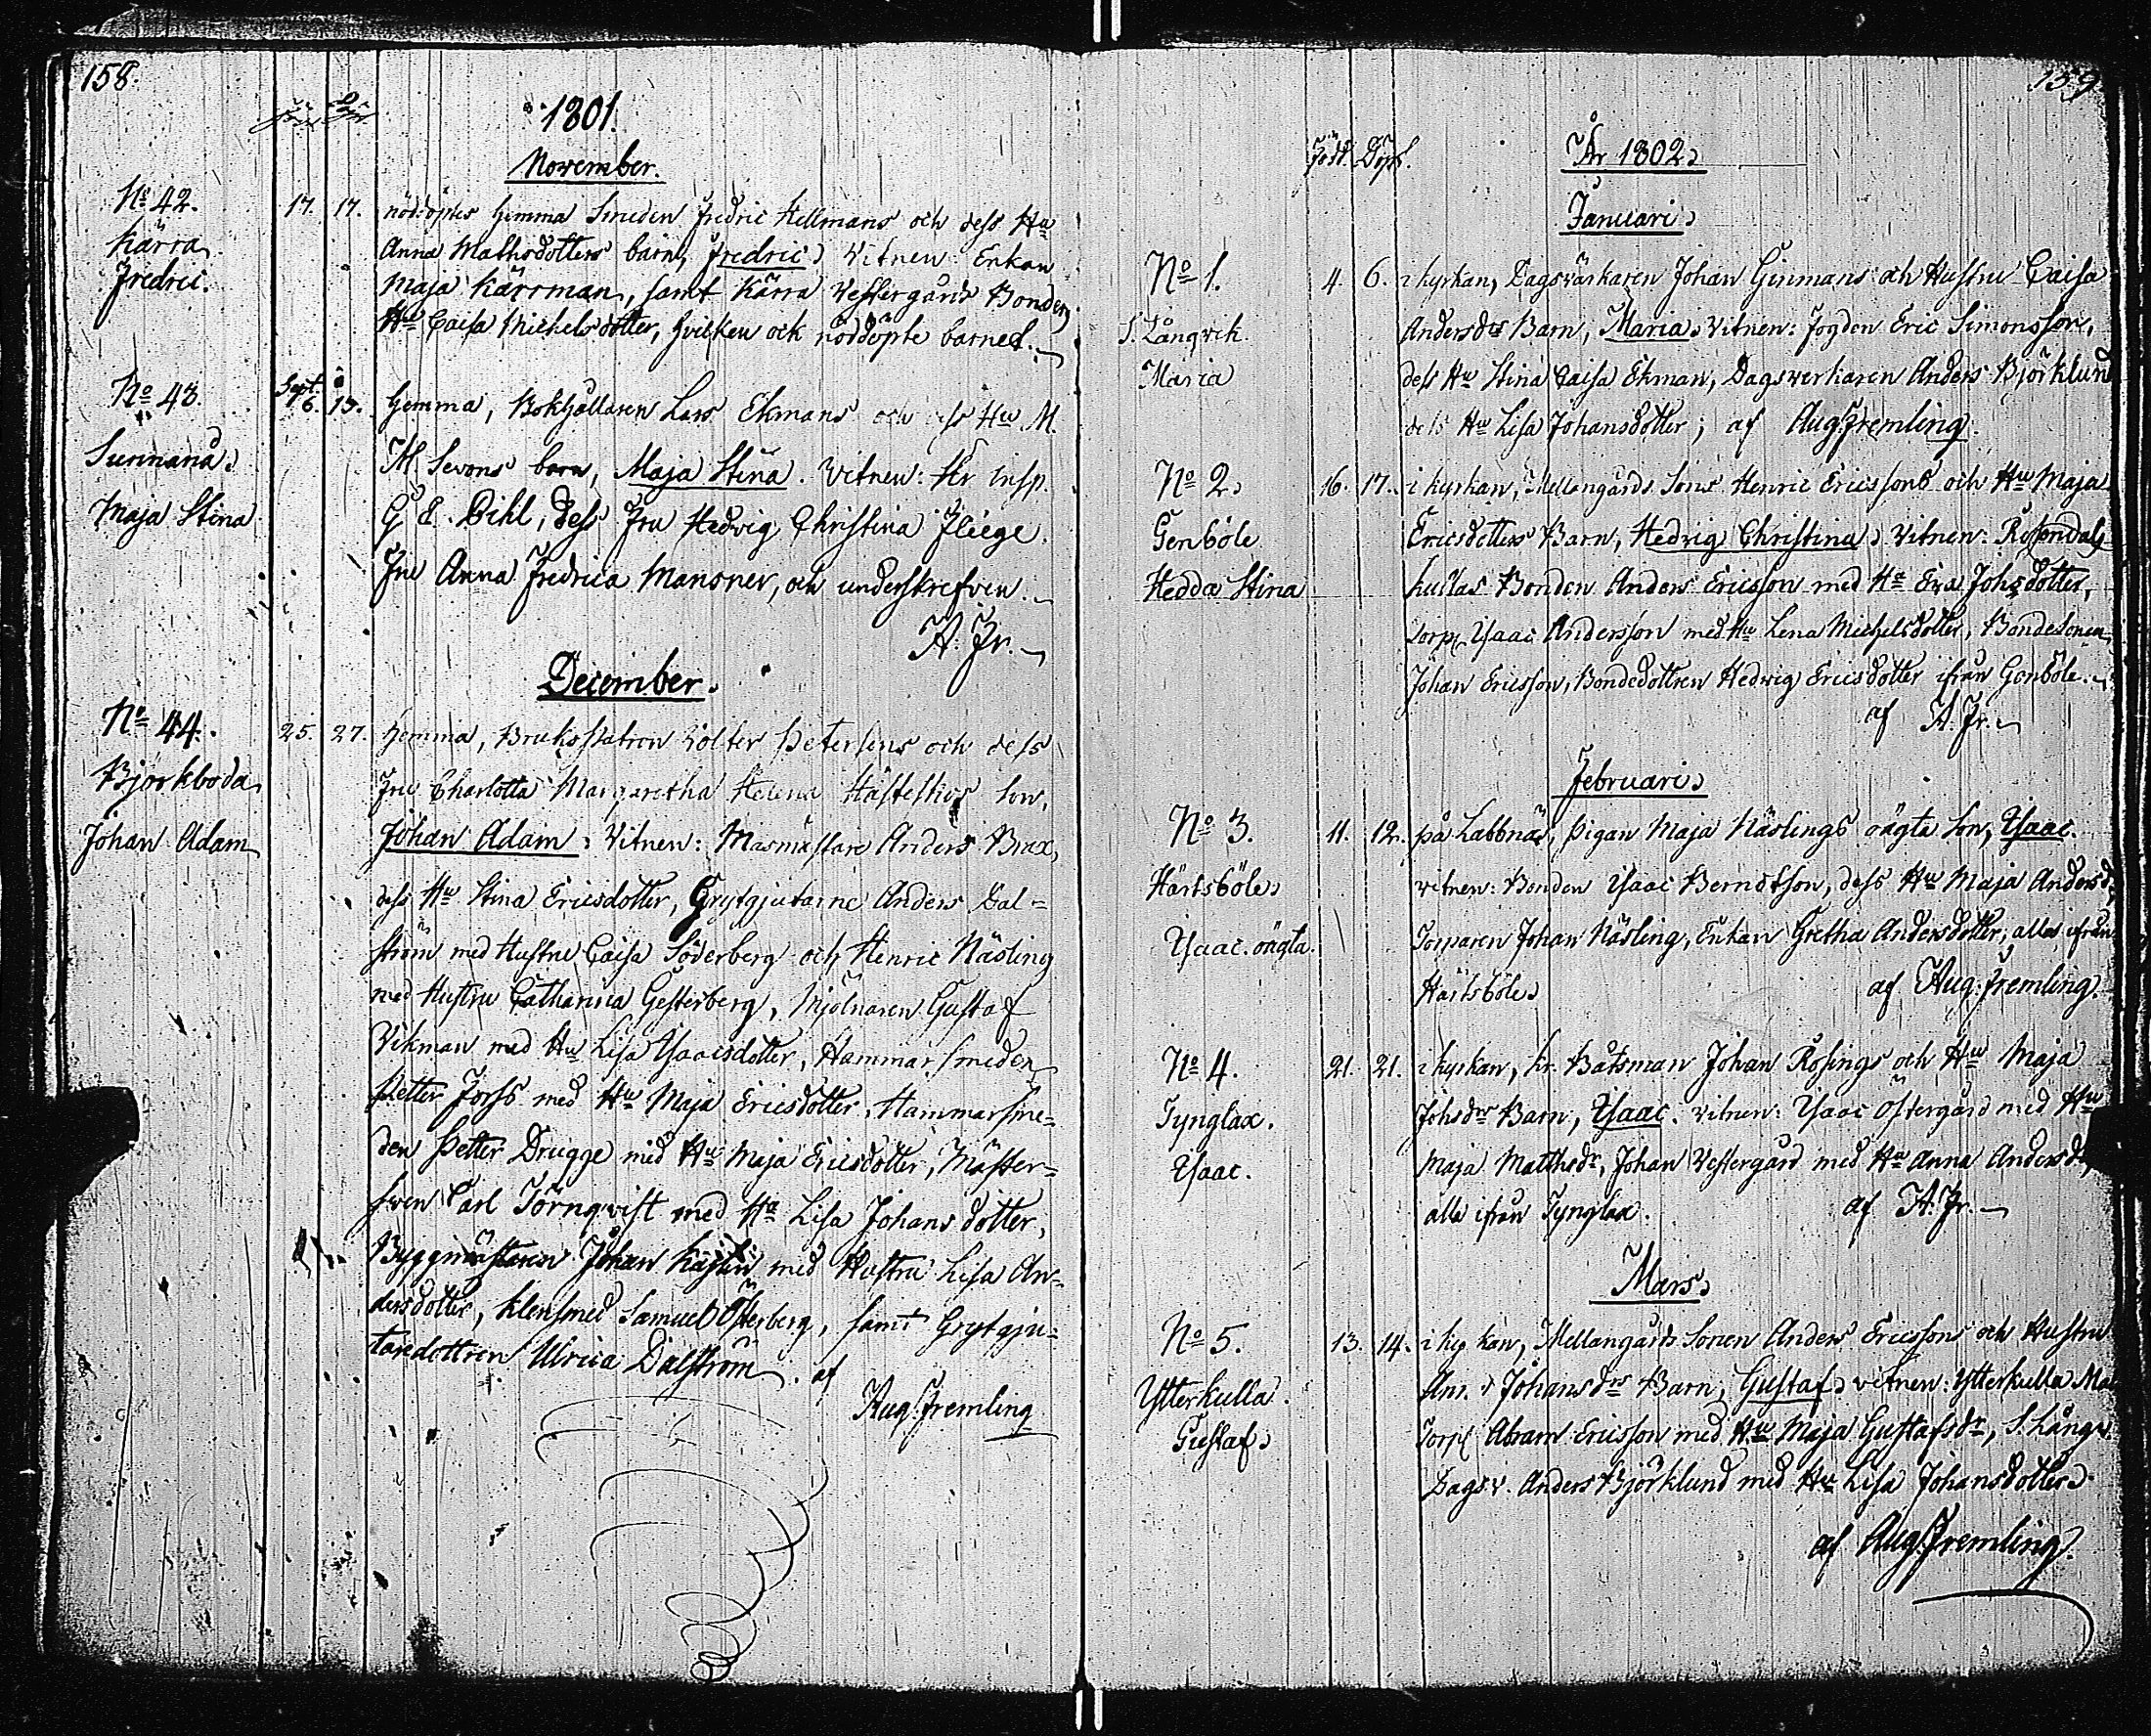 158.
Född Döpt
1801.
November.
No 42.
Kärra
Fredric.
17. 17. nöddöptes hemma Smeden Fredric Hellmans och dess Hu
Anna Mathsdotters barn, Fredric, Vitnen: Enkan
Maja Kärrman, samt Kärra Vestergårds Bondens
Hu Caisa Michelsdotter, hvilken ock nöddöpte barnet.
No 43.
Sunnanå.
Maja Stina
Sept. 6. 15. hemma, Bokhållaren Lars Ekmans och dess Hu M.
M Sevons barn, Maja Stina. Vitnen: Hr Insp.
G E. Bihl, dess Fru Hedvig Christina Fliege.
Fru Anna Fredrica Mansner, och underskrefven.
A: Fr.
December.
No 44.
Björkboda
Johan Adam
25. 27. hemma, Bruks Patron Wolter Petersens och dess
Fru Charlotta Margaretha Helena Hästeskos Son,
Johan Adam, Vitnen: Masmästare Anders Brax,
dess Hu Stina Ericsdotter, Grytgjutarne Anders Dal-
ström med Hustru Caisa Söderberg och Henric Näsling
med Hustru Catharina Gesterberg, Mjölnaren Gustaf
Vikman med Hu Lisa Isaacsdotter, Hammarsmeden
Petter Forss med Hu Maja Ericsdotter, Hammarsme-
den Petter Drugge med Hu Maja Ericsdotter, Mäster-
sven Carl Törnqvist med Hu Lisa Johansdotter,
Byggmästaren Johan med Hustru Lisa An-
dersdotter, klensmed Samuel Österberg, samt Grytgju-
taredottren Ulrica Dalström. af
Aug. Fremling
159
Född. Döpt.
År 1802
Januari
No 1.
S. Långvik
Maria
4. 6. i kyrkan, Dagsvärkaren Johan Ginmans och Hustru Caisa
Andersdrs Barn, Maria. Vitnen: Fogden Eric Simonsson,
dess Hu Stina Caisa Ekman, Dagsverkaren Anders Björklund
dess Hu Lisa Johansdotter; af Aug. Fremling.
No 2.
Genböle
Hedda Stina
16. 17. i kyrkan, Mellangårds Sons Henric Ericssons och Hu Maja
Ericsdotters Barn, Hedvig Christina, Vitnen: Rosendals
kullas Bonden Anders Ericsson med Hu Eva Johsdotter,
Torp. Isaac Andersson med Hu Lena Michelsdotter, Bondesonen
Johan Ericsson, Bondedottren Hedwig Ericsdotter ifrån Genböle.
af A. Fr.
Februari
No 3.
Härtsböle
Isaac. oägta.
11. 12. på Labbnäs, Pigan Maja Näslings oägta Son, Isaac.
vitnen: Bonden Isaac Berndtson, dess Hu Maja Andersd.
Torparen Johan Näsling, Enkan Gretha Andersdotter, alla ifrån
Härtsböle. af Aug: Fremling.
No 4.
Tynglax.
Isaac.
21. 21. i kyrkan, kr. Båtsman Johan Rosings och Hu Maja
Johsdrs Barn, Isaac. vitnen: Isaac Östergård med Hu
Maja Matthsdr, Johan Vestergård med Hu Anna Andersdr,
alla ifrån Tynglax. af A. Fr.
Mars
No 5.
Ytterkulla.
Gustaf
13. 14. i kyrkan, Mellangårds Sonen Anders Ericssons och Hustru
Johansdrs Barn, Gustaf, vitnen: Ytterkulla
Torp. Abram Ericsson med Hu Maja Gustafsdr, S. Långv.
Dagsv. Anders Björklund med Hu Lisa Johansdotter.
af Aug. Fremling.